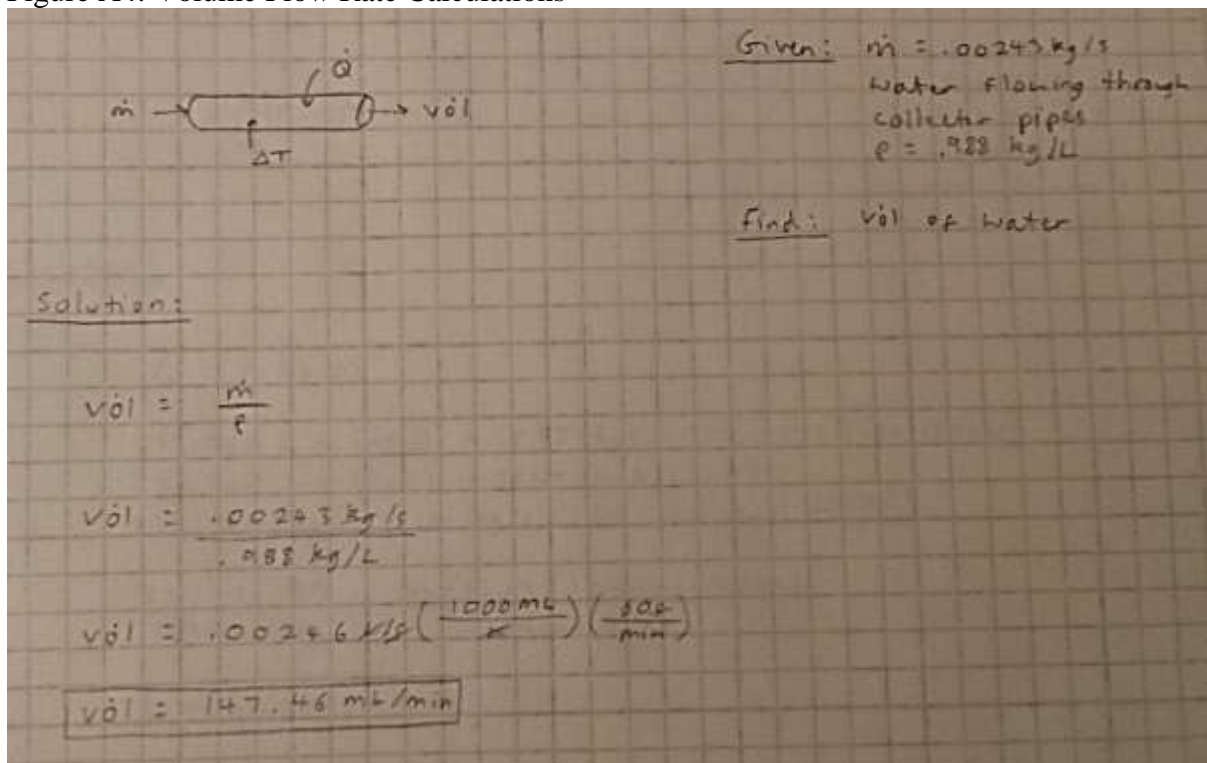 Figure A4.: Volume Flow Rate Calculations
Given: ṁ = .00243 kg/s
water flowing through
collector pipes
ρ = .988 kg/L
Q̇
ṁ
vȯl
ΔT
Find: vȯl of water
Solution:
vȯl = ṁ/ρ
vȯl = .00243 kg/s
.988 kg/L
vȯl = .00246 L/s (1000 mL/L) (60s/min)
vȯl = 147.46 mL/min